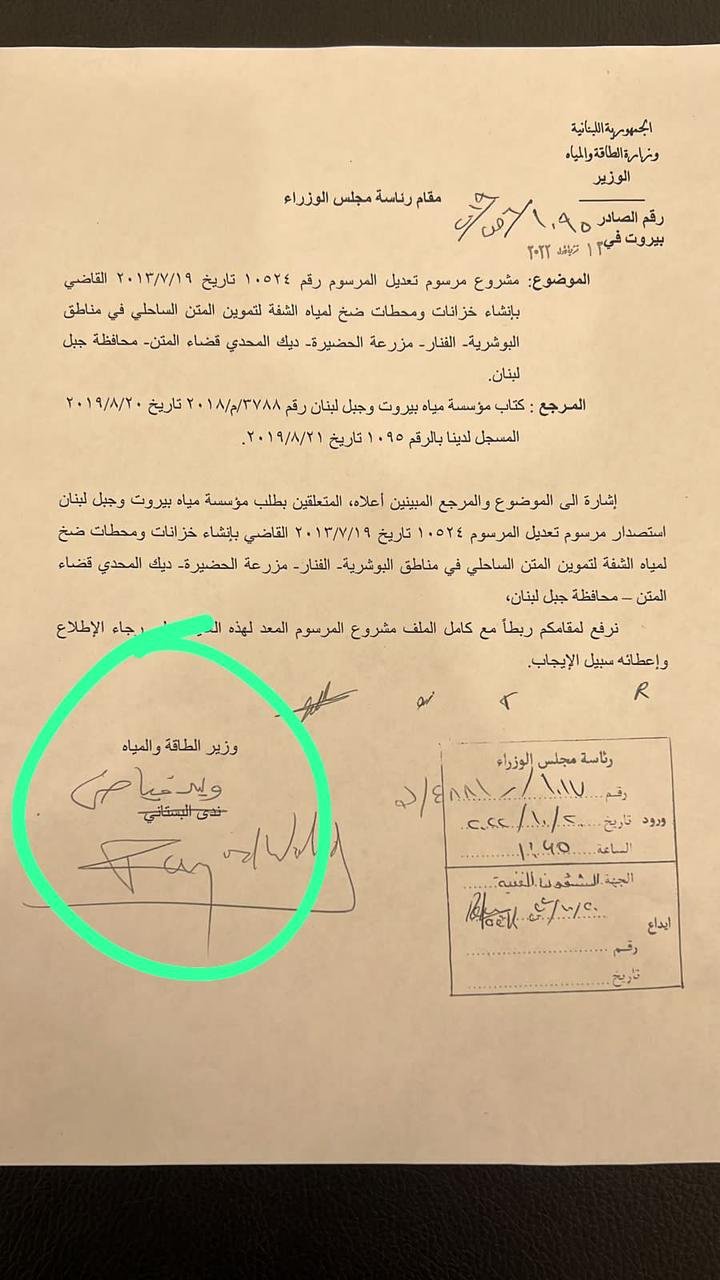 الجمهورية اللبنانية
وزارة الطاقة والمياه
الوزير
مقام رئاسة مجلس الوزراء
رقم الصادر ١٠٩٥
بيروت في
الموضوع: مشروع مرسوم تعديل المرسوم رقم ١٠٥٢٤ تاريخ ٢٠١٣/٧/١٩ القاضي
بإنشاء خزانات ومحطات ضخ لمياه الشفة لتموين المتن الساحلي في مناطق
البوشرية- الفنار- مزرعة الحضيرة- ديك المحدي قضاء المتن- محافظة جبل
لبنان.
المرجع : كتاب مؤسسة مياه بيروت وجبل لبنان رقم ٣٧٨٨/م/٢٠١٨ تاريخ ٢٠١٩/٨/٢٠
المسجل لدينا بالرقم ١٠٩٥ تاريخ ٢٠١٩/٨/٢١.
إشارة الى الموضوع والمرجع المبينين أعلاه، المتعلقين بطلب مؤسسة مياه بيروت وجبل لبنان
استصدار مرسوم تعديل المرسوم ١٠٥٢٤ تاريخ ٢٠١٣/٧/١٩ القاضي بإنشاء خزانات ومحطات ضخ
لمياه الشفة لتموين المتن الساحلي في مناطق البوشرية- الفنار- مزرعة الحضيرة- ديك المحدي قضاء
المتن – محافظة جبل لبنان،
نرفع لمقامكم ربطاً مع كامل الملف مشروع المرسوم المعد لهذه رجاء الإطلاع
وإعطائه سبيل الإيجاب.
R
وزير الطاقة والمياه
وليد فياض
ندى البستاني
Fayad Walid
رئاسة مجلس الوزراء
رقم
ورود تاريخ ٢٠٢٢/١٠/٢٠
الساعة
الجهة الشؤون الفنية
ايداع
رقم
تاريخ